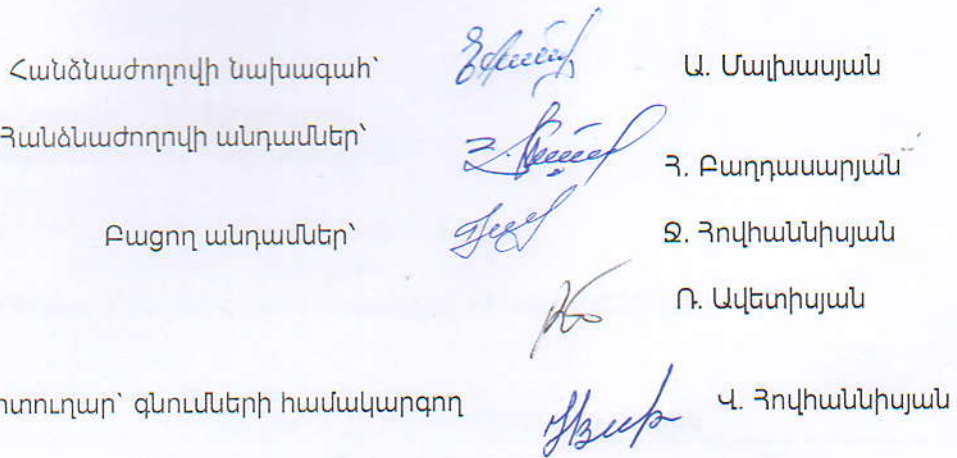 Հանձնաժողովի նախագահ՝ Ա. Մալխասյան
Հանձնաժողովի անդամներ՝
Հ. Բաղդասարյան
Բացող անդամներ՝ Ջ. Հովհաննիսյան
Ռ. Ավետիսյան
րտուղար՝ գնումների համակարգող Վ. Հովհաննիսյան